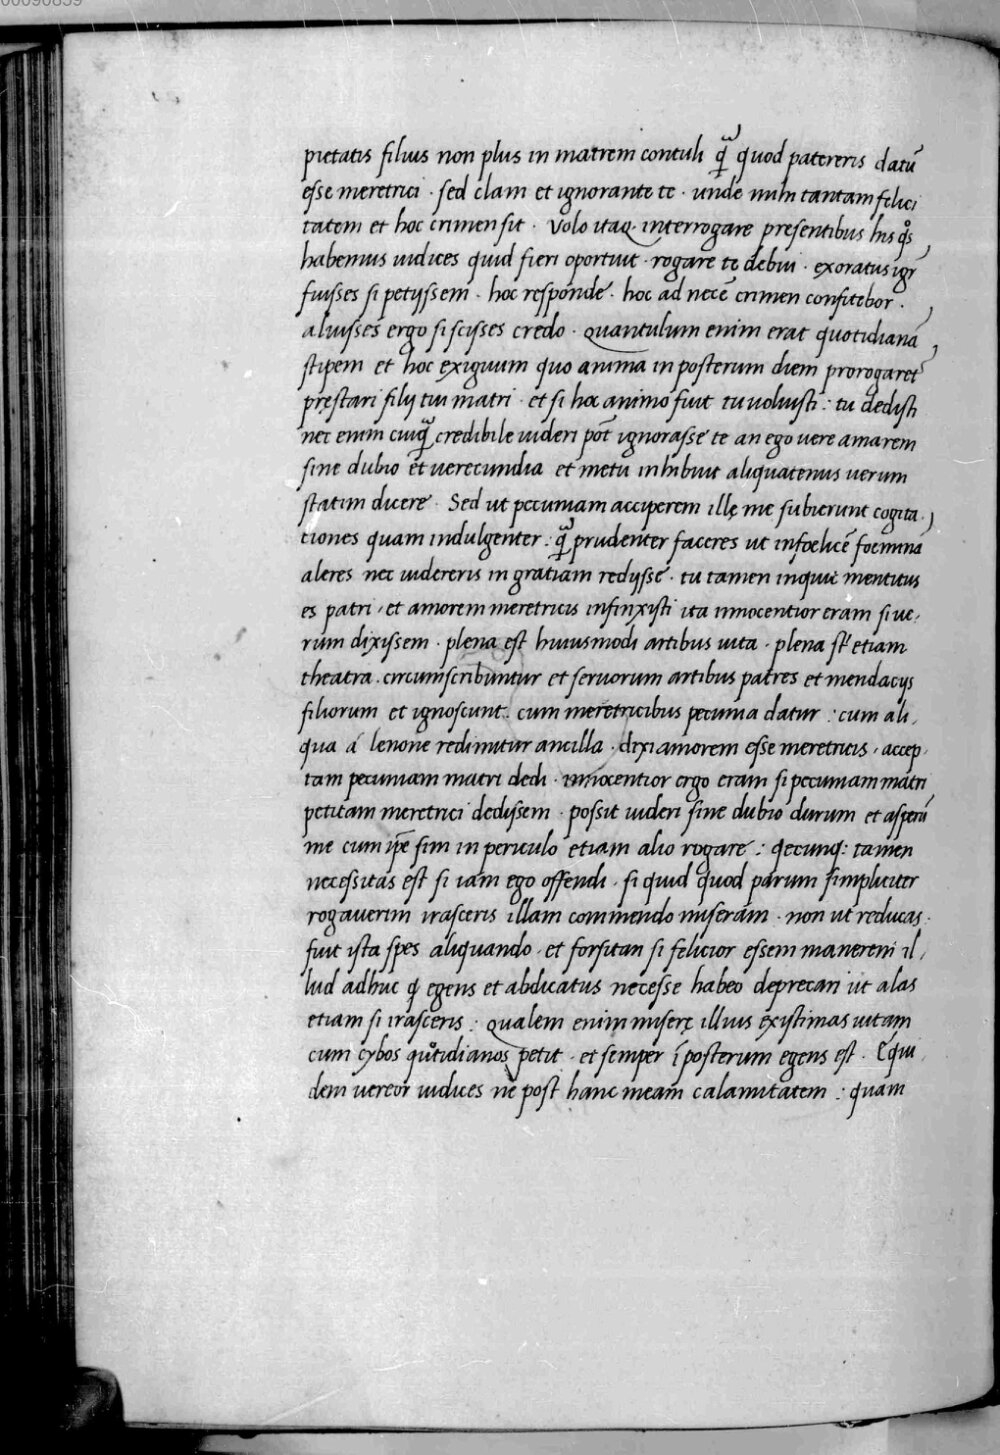 00090859
pietatis filius non plus in matrem contuli q̃ quod patereris datū
esse meretrici · sed clam et ignorante te · unde mihi tantam felici
tatem et hoc crimen sit · Volo itaq. interrogare presentibus his q̊s
habemus iudices quid fieri oportuit · rogare te debui · exoratus igr̄
fuisses si petijssem · hoc responde · hoc ad necē crimen confitebor .
aluisses ergo si scisses credo · quantulum enim erat quotidianā
stipem et hoc exiguum quo anima in posterum diem prorogaret᷒
pręstari filij tui matri · et si hoc animo fuit tu voluisti : tu dedisti
nec enim cuiq̃ credibile uideri pōt ignorasse te an ego uere amarem
sine dubio et uerecundia et metu inhibuit aliquatenus uerum
statim dicere · Sed ut pecuniam acciperem illę me subierunt cogita
tiones quam indulgenter : q̃ prudenter faceres ut infoelicē foeminā
aleres nec uidereris in gratiam redijsse · tu tamen inquit mentitus
es patri · et amorem meretricis infinxisti ita innocentior eram si ue,
rum dixissem · plena est huiusmodi artibus uita · plena st̄ etiam
theatra . circumscribuntur et seruorum artibus patres et mendacijs
filiorum et ignoscunt . cum meretricibus pecunia datur : cum ali,
qua á lenone redimitur ancilla · dixi amorem esse meretricis · accep,
tam pecuniam matri dedi · innocentior ergo eram si pecuniam matri
petitam meretrici dedissem · possit uideri sine dubio durum et asperū
me cum ip̄e sim in periculo etiam alio rogare : qecunq: tamen
necessitas est si iam ego offendi · si quid quod parum simpliciter
rogauerim irasceris illam commendo miseram · non ut reducas ·
fuit ista spes aliquando · et forsitan si felicior essem manerem il,
lud adhuc q̄ egens et abdicatus necesse habeo deprecari ut alas
etiam si irasceris : qualem enim miserę illius existimas uitam
cum cybos quotidianos petit · et semper ī posterum egens est . Eqūi,
dem uereor iudices ne post hanc meam calamitatem : quam